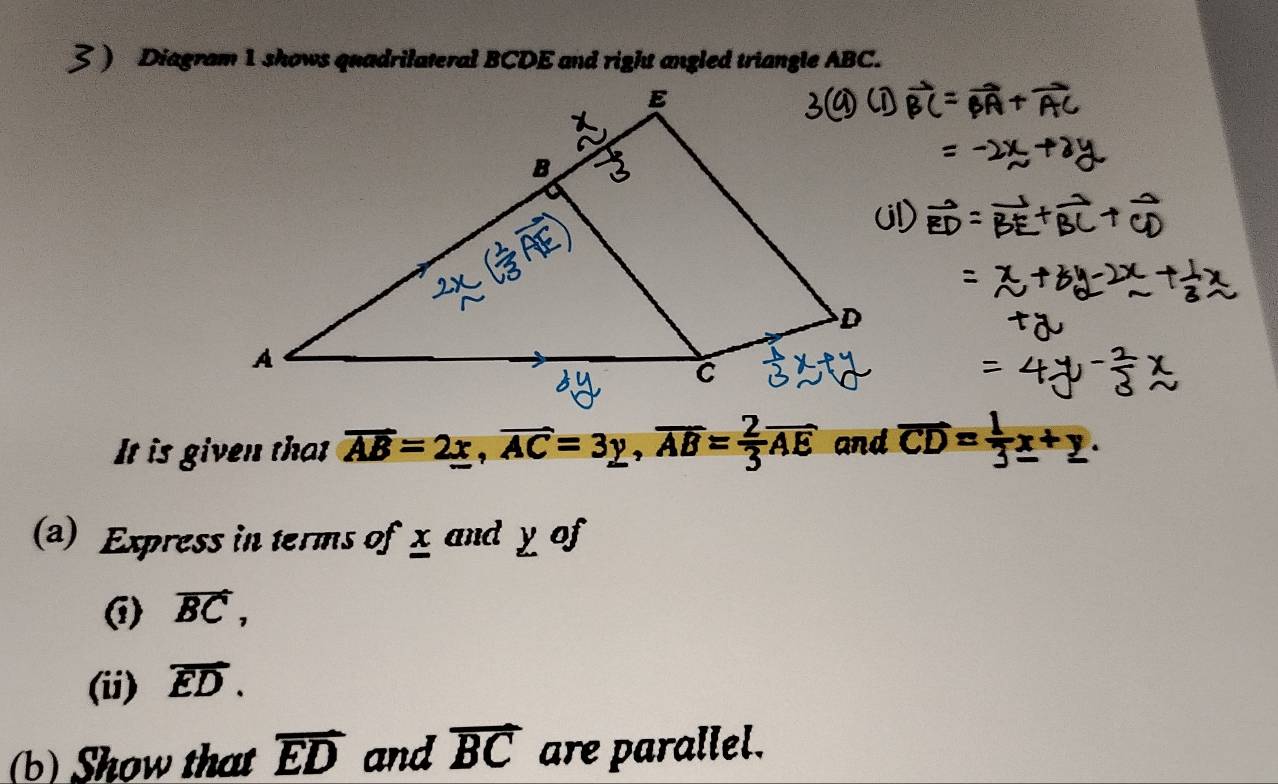 3) Diagram 1 shows quadrilateral BCDE and right angled triangle ABC.
E
x̰
1/3
B
2x̰ (2/3 A⃗E⃗)
A
C
D
3y
1/3 x̰ + y
3(a) (i) B⃗C⃗ = B⃗A⃗ + A⃗C⃗
= -2x̰ + 3y
(ii) E⃗D⃗ = B⃗E⃗ + B⃗C⃗ + C⃗D⃗
= x̰ + 3y - 2x̰ + 1/3 x̰
+ y
= 4y - 2/3 x̰
It is given that A⃗B⃗ = 2x̲, A⃗C⃗ = 3y̲, A⃗B⃗ = 2/3 A⃗E⃗ and C⃗D⃗ = 1/3 x̲ + y̲.
(a) Express in terms of x̲ and y̲ of
(i) B⃗C⃗,
(ii) E⃗D⃗.
(b) Show that E⃗D⃗ and B⃗C⃗ are parallel.